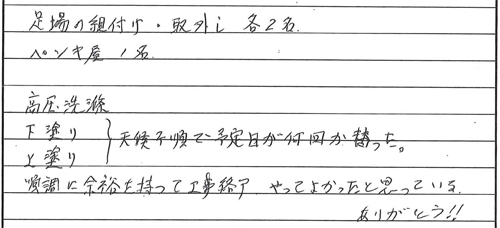 足場の組付け・取外し 各2名.
ペンキ屋 1名.
高圧洗滌
下塗り
上塗り
天候不順で予定日が何回か替った。
順調に余裕を持って工事終了 やってよかったと思っている.
ありがとう!!